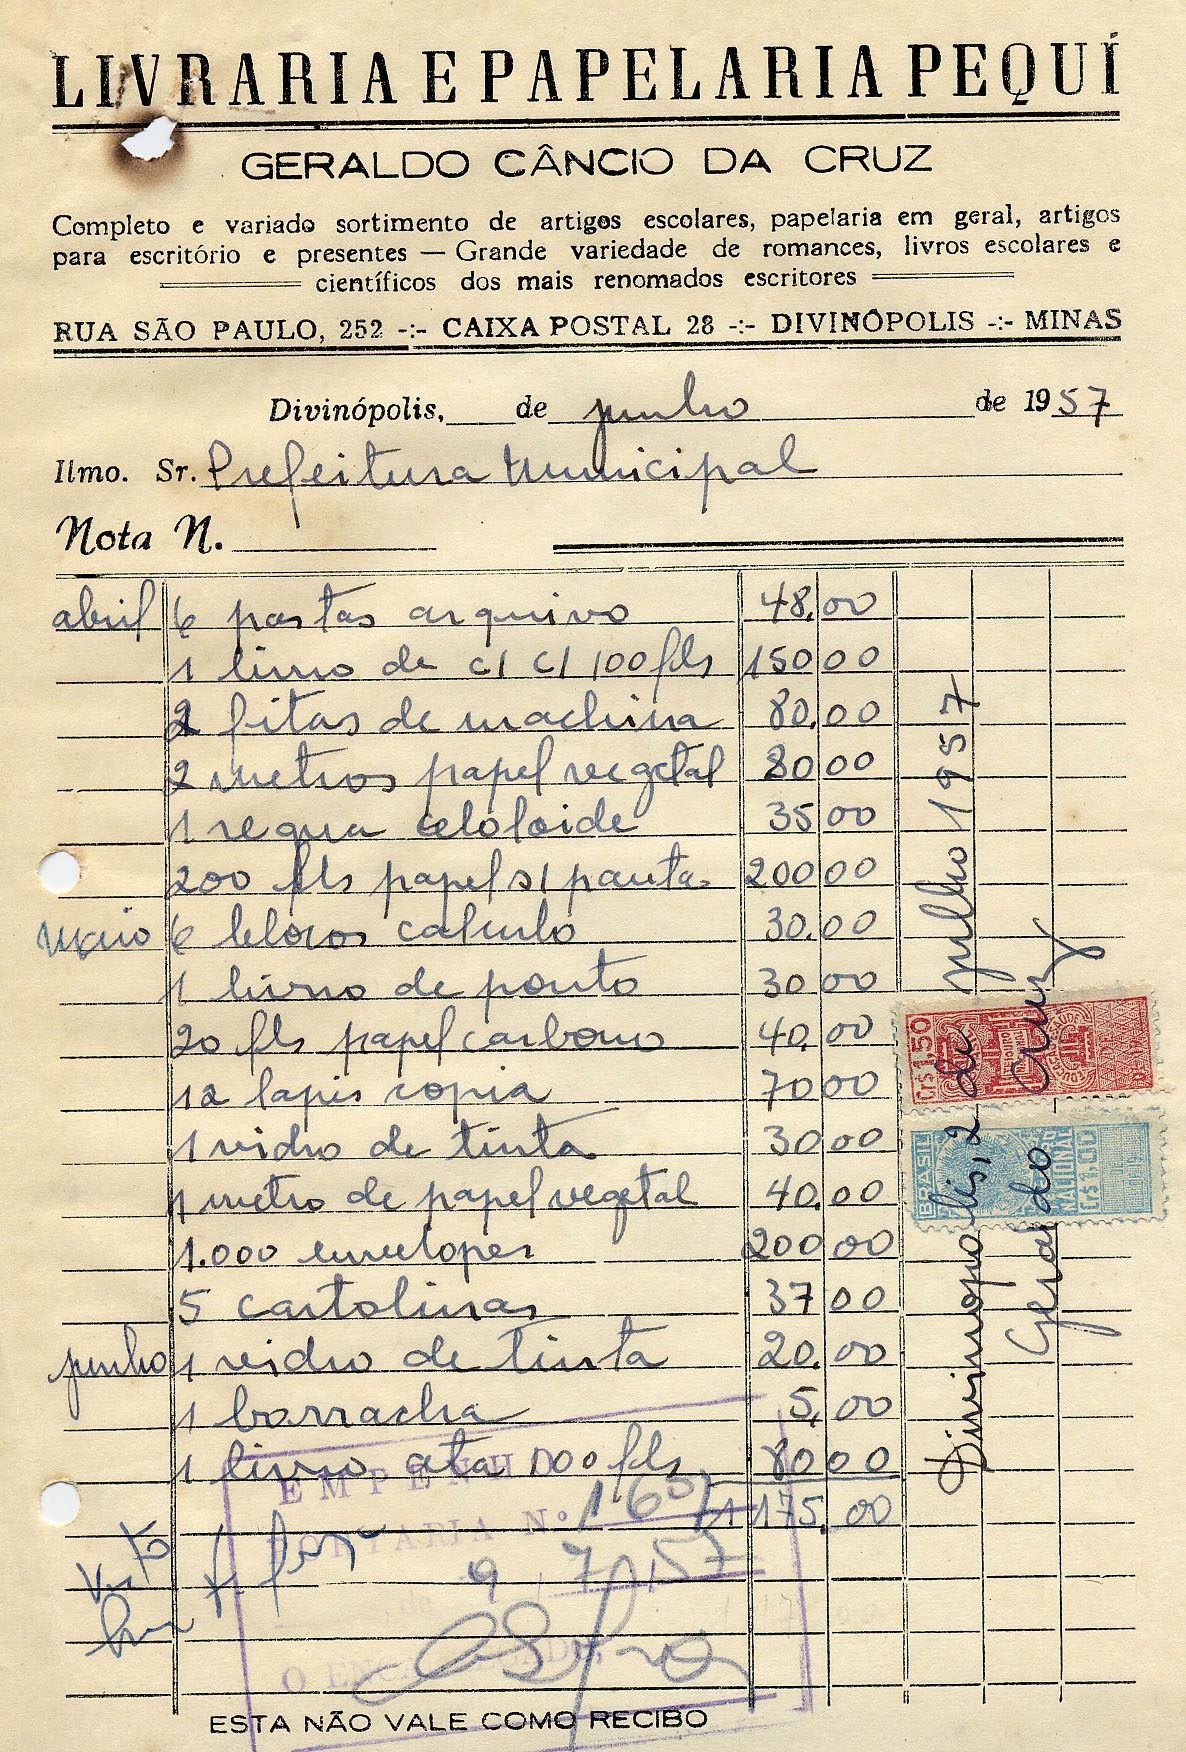 LIVRARIA E PAPELARIA PEQUÍ
GERALDO CÂNCIO DA CRUZ
Completo e variado sortimento de artigos escolares, papelaria em geral, artigos
para escritório e presentes — Grande variedade de romances, livros escolares e
científicos dos mais renomados escritores
RUA SÃO PAULO, 252 -:- CAIXA POSTAL 28 -:- DIVINÓPOLIS -:- MINAS
Divinópolis, de junho de 1957
Ilmo. Sr. Prefeitura Municipal
Nota N.
abril 6 pastas arquivo 48,00
1 livro de c/ c/ 100 fls 150 00
2 fitas de machina 80,00
2 metros papel vegetal 80 00
1 regua celoloide 35 00
200 fls papel s/ pauta 200 00
Maio 6 blocos calculo 30,00
1 livro de ponto 30 00
20 fls papel carbono 40,00
12 lapis copia 70 00
1 vidro de tinta 30 00
1 metro de papel vegetal 40,00
1.000 envelopes 200 00
5 cartolinas 37 00
junho 1 vidro de tinta 20,00
1 borracha 5,00
1 livro ata 100 fls 80 00
1 175,00
Divinopolis, 2 de julho 1957
Geraldo Cruz
CR$ 1,50
TESOURO NACIONAL
EDUCAÇÃO SAUDE
BRASIL
NACIONAL
CR$ 1,00
EMPENHO
PORTARIA N.º
9 / 7 / 57
O ENCARREGADO,
ESTA NÃO VALE COMO RECIBO